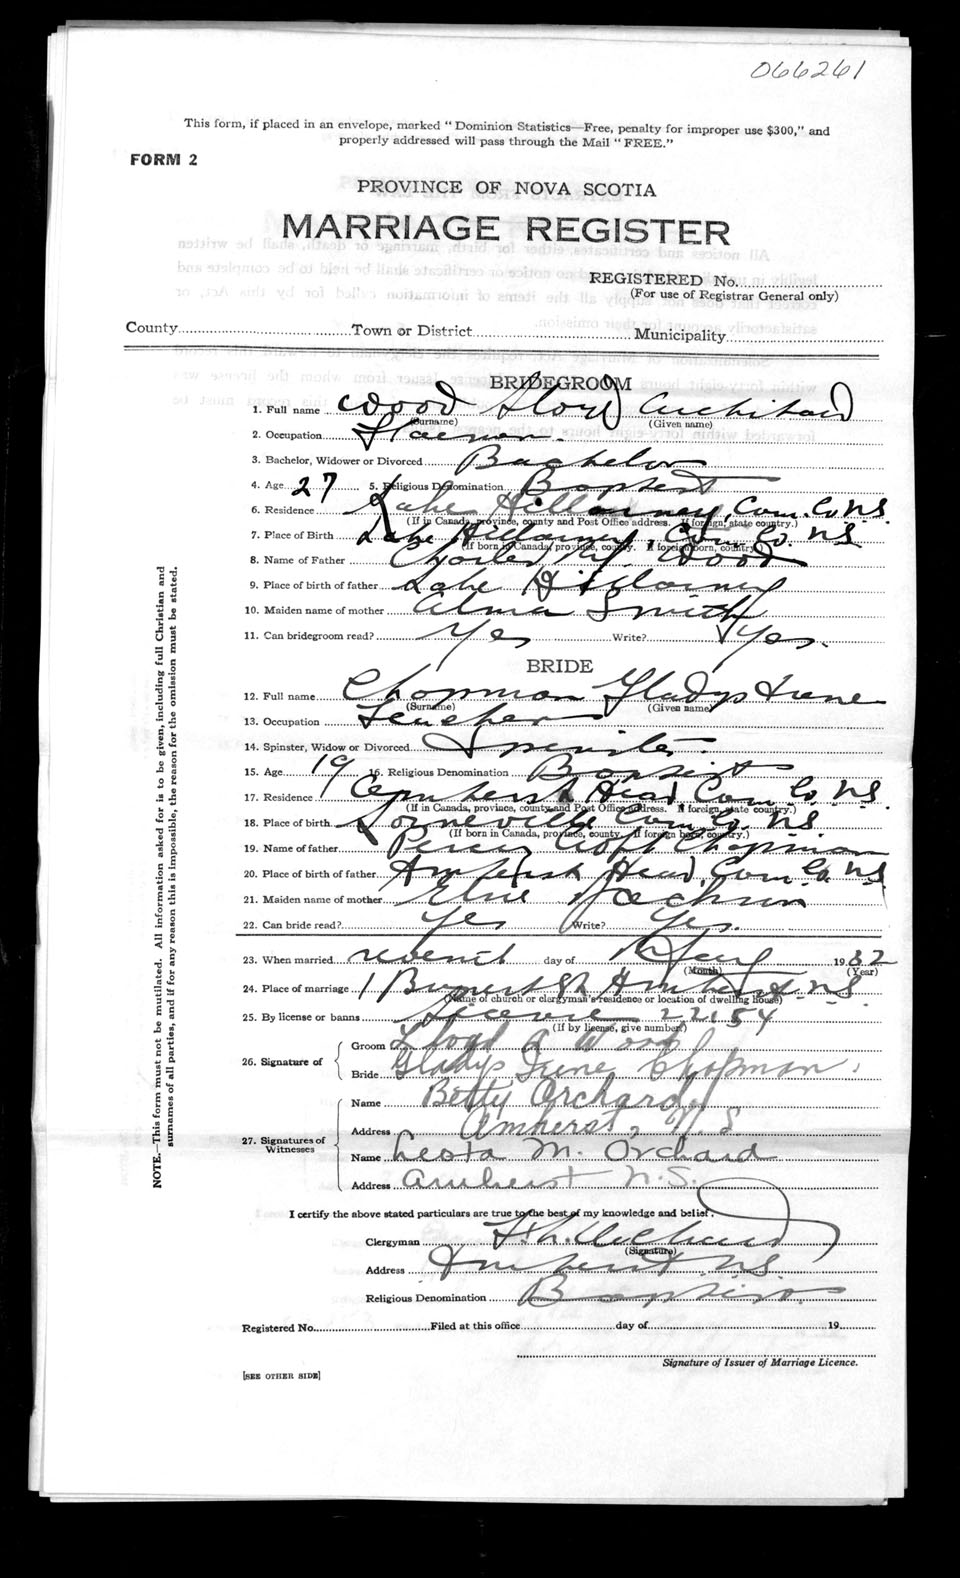 066261
This form, if placed in an envelope, marked " Dominion Statistics—Free, penalty for improper use $300," and
properly addressed will pass through the Mail " FREE."
FORM 2
PROVINCE OF NOVA SCOTIA
MARRIAGE REGISTER
REGISTERED No.
(For use of Registrar General only)
County Town or District Municipality
BRIDEGROOM
1. Full name Wood Lloyd
(Surname) (Given name)
2. Occupation
3. Bachelor, Widower or Divorced Bachelor
4. Age 27 5. Religious Denomination Baptist
6. Residence Lake Killarney, Cum. Co. N.S.
(If in Canada, province, county and Post Office address. If foreign, state country.)
7. Place of Birth Lake Killarney, Cum. Co. N.S.
(If born in Canada, province, county. If foreign born, country.)
8. Name of Father Charles Wood
9. Place of birth of father Lake Killarney
10. Maiden name of mother Alma Smith
11. Can bridegroom read? Yes Write? Yes.
BRIDE
12. Full name Chapman Gladys Irene
(Surname) (Given name)
13. Occupation Teacher
14. Spinster, Widow or Divorced Spinster.
15. Age 19 16. Religious Denomination Baptist
17. Residence Amherst Head Cum. Co. N.S.
(If in Canada, province, county and Post Office address. If foreign, state country.)
18. Place of birth Lorneville Cum. Co. N.S.
(If born in Canada, province, county. If foreign born, country.)
19. Name of father Percy Croft Chapman
20. Place of birth of father Amherst Head, Cum. Co. N.S.
21. Maiden name of mother Elsie Jackson
22. Can bride read? Yes Write? Yes.
23. When married day of 1932
(Month) (Year)
24. Place of marriage Amherst N.S.
(Name of church or clergyman's residence or location of dwelling house)
25. By license or banns License 22154
(If by license, give number)
26. Signature of Groom Lloyd A Wood
Bride Gladys Irene Chapman.
27. Signatures of Witnesses Name Betty Orchard
Address Amherst, N.S
Name Leota M. Orchard
Address Amherst N.S.
I certify the above stated particulars are true to the best of my knowledge and belief.
Clergyman Orchard
(Signature)
Address Amherst N.S.
Religious Denomination Baptist
Registered No. Filed at this office day of 19
Signature of Issuer of Marriage Licence.
[SEE OTHER SIDE]
NOTE.—This form must not be mutilated. All information asked for is to be given, including full Christian and
surnames of all parties, and if for any reason this is impossible, the reason for the omission must be stated.